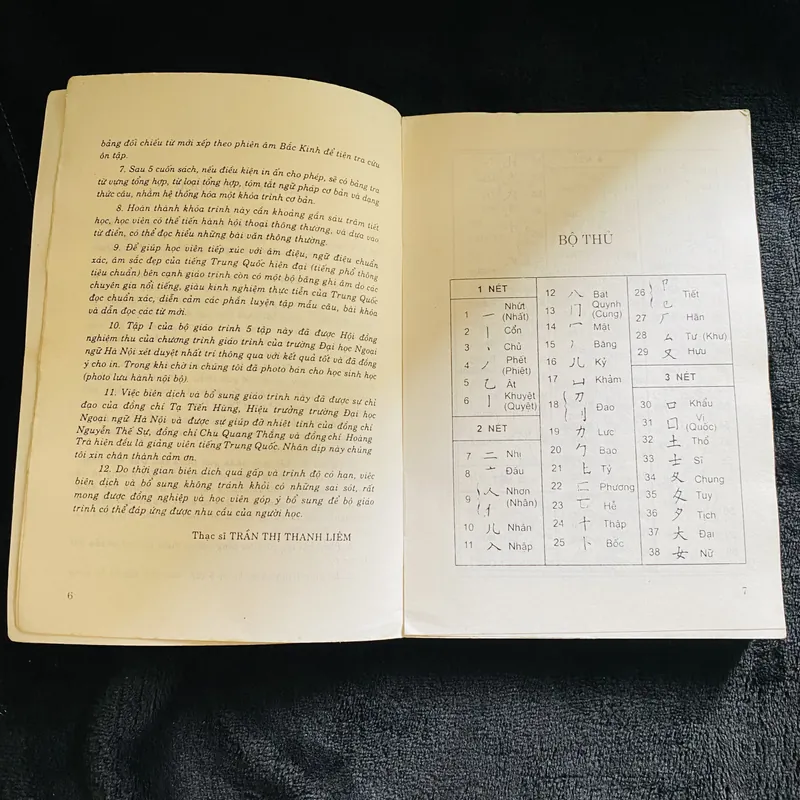 bảng đối chiếu từ mới xếp theo phiên âm Bắc Kinh để tiện tra cứu
ôn tập.
7. Sau 5 cuốn sách, nếu điều kiện in ấn cho phép, sẽ có bảng tra
từ vựng tổng hợp, từ loại tổng hợp, tóm tắt ngữ pháp cơ bản và dạng
thức câu, nhằm hệ thống hóa một khóa trình cơ bản.
8. Hoàn thành khóa trình này cần khoảng gần sáu trăm tiết
học, học viên có thể tiến hành hội thoại thông thường, và dựa vào
từ điển, có thể đọc hiểu những bài văn thông thường.
9. Để giúp học viên tiếp xúc với âm điệu, ngữ điệu chuẩn
xác, âm sắc đẹp của tiếng Trung Quốc hiện đại (tiếng phổ thông
tiêu chuẩn) bên cạnh giáo trình còn có một bộ băng ghi âm do các
chuyên gia nổi tiếng, giàu kinh nghiệm thực tiễn của Trung Quốc
đọc chuẩn xác, diễn cảm các phần luyện tập mẫu câu, bài khóa
và dẫn đọc các từ mới.
10. Tập I của bộ giáo trình 5 tập này đã được Hội đồng
nghiệm thu của chương trình giáo trình của trường Đại học Ngoại
ngữ Hà Nội xét duyệt nhất trí thông qua với kết quả tốt và đã đồng
ý cho in. Trong khi chờ in chúng tôi đã photo bản cho học sinh học
(photo lưu hành nội bộ).
11. Việc biên dịch và bổ sung giáo trình này đã được sự chỉ
đạo của đồng chí Tạ Tiến Hùng, Hiệu trưởng trường Đại học
Ngoại ngữ Hà Nội và được sự giúp đỡ nhiệt tình của đồng chí
Nguyễn Thế Sự, đồng chí Chu Quang Thắng và đồng chí Hoàng
Trà hiện đều là giảng viên tiếng Trung Quốc. Nhân dịp này chúng
tôi xin chân thành cảm ơn.
12. Do thời gian biên dịch quá gấp và trình độ có hạn, việc
biên dịch và bổ sung không tránh khỏi có những sai sót, rất
mong được đồng nghiệp và học viên góp ý bổ sung để bộ giáo
trình có thể đáp ứng được nhu cầu của người học.
Thạc sĩ TRẦN THỊ THANH LIÊM
6
BỘ THỦ
1 NÉT
1 一 Nhứt
(Nhất)
2 丨 Cổn
3 丶 Chủ
4 丿 Phết
(Phiệt)
5 乙 Ất
6 亅 Khuyết
(Quyết)
2 NÉT
7 二 Nhị
8 亠 Đầu
9 人 亻 Nhơn
(Nhân)
10 儿 Nhân
11 入 Nhập
12 八 Bát
13 冂 Quynh
(Cung)
14 冖 Mát
15 冫 Băng
16 几 Kỷ
17 凵 Khảm
18 刀 刂 Đao
19 力 Lực
20 勹 Bao
21 匕 Tỷ
22 匚 Phương
23 匸 Hễ
24 十 Thập
25 卜 Bốc
26 卩 㔾 Tiết
27 厂 Hãn
28 厶 Tư (Khư)
29 又 Hưu
3 NÉT
30 口 Khẩu
31 囗 Vi
(Quốc)
32 土 Thổ
33 士 Sĩ
34 夂 Chung
35 夊 Tuy
36 夕 Tịch
37 大 Đại
38 女 Nữ
7